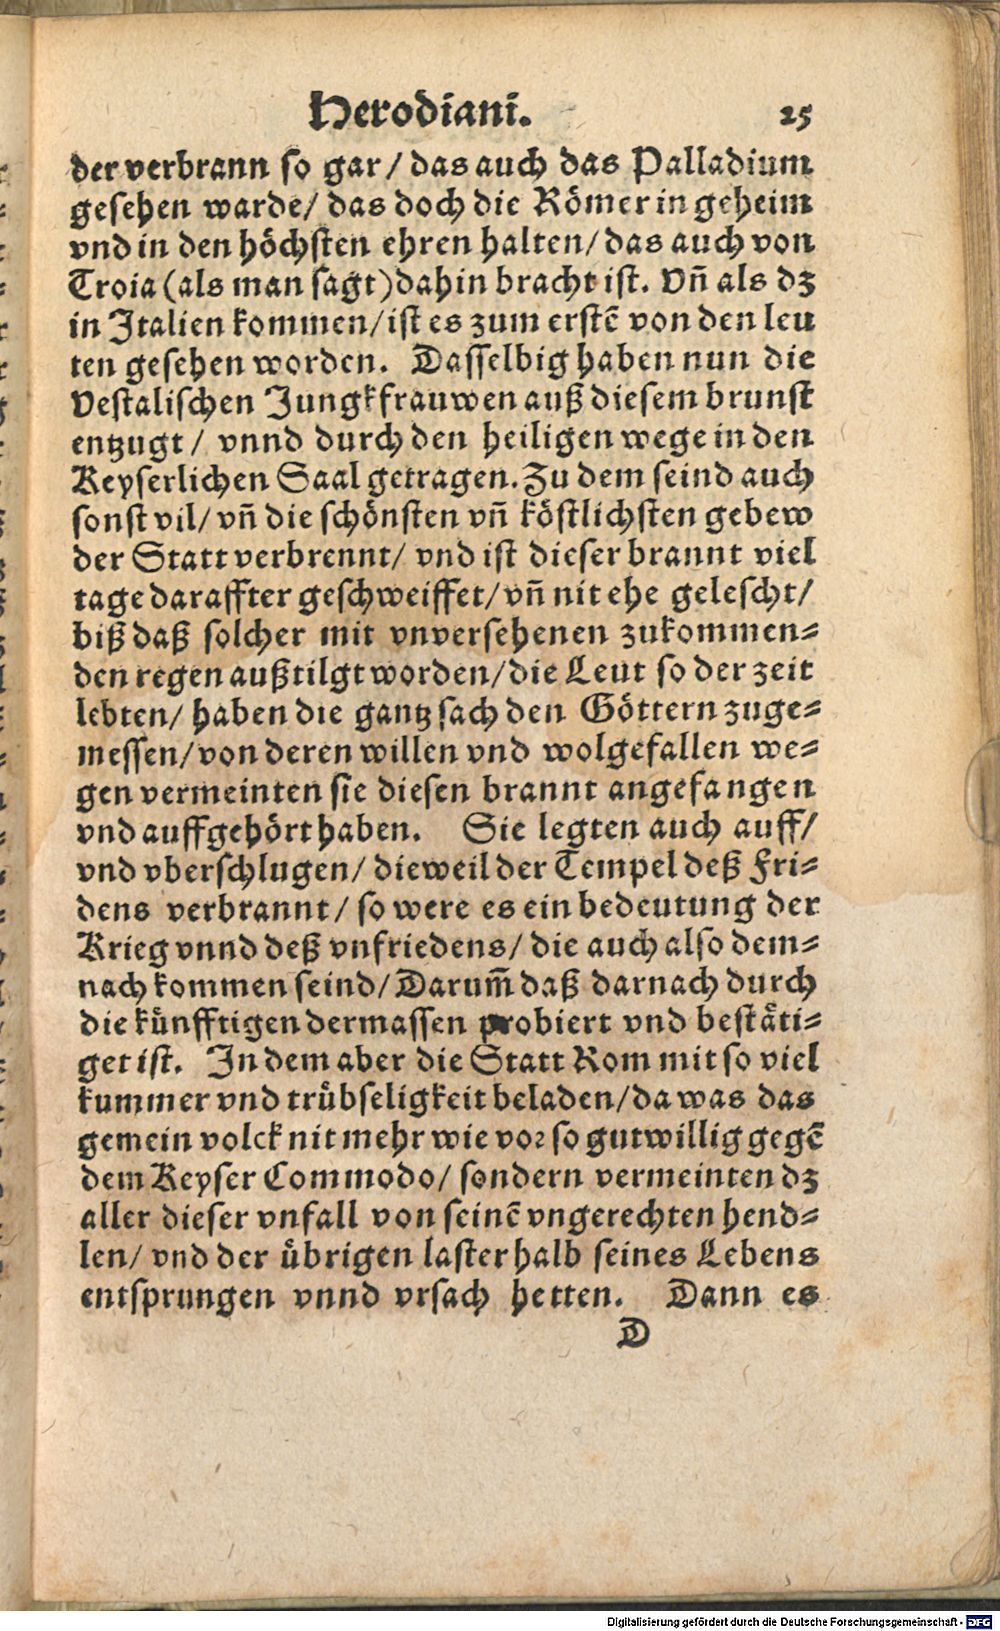 Herodiani. 25
der verbrann so gar/ das auch das Palladium
gesehen warde/ das doch die Römer in geheim
vnd in den höchsten ehren halten/ das auch von
Troia (als man sagt) dahin bracht ist. Vñ als dz
in Italien kommen/ ist es zum erstẽ von den leu
ten gesehen worden. Dasselbig haben nun die
Vestalischen Jungkfrauwen auß diesem brunst
entzugt/ vnnd durch den heiligen wege in den
Keyserlichen Saal getragen. Zu dem seind auch
sonst vil/ vñ die schönsten vñ köstlichsten gebew
der Statt verbrennt/ vnd ist dieser brannt viel
tage daraffter geschweiffet/ vñ nit ehe gelescht/
biß daß solcher mit vnversehenen zukommen-
den regen außtilgt worden/ die Leut so der zeit
lebten/ haben die gantz sach den Göttern zuge-
messen/ von deren willen vnd wolgefallen we-
gen vermeinten sie diesen brannt angefangen
vnd auffgehört haben. Sie legten auch auff/
vnd vberschlugen/ dieweil der Tempel deß Fri-
dens verbrannt/ so were es ein bedeutung der
Krieg vnnd deß vnfriedens/ die auch also dem-
nach kommen seind/ Darum̃ daß darnach durch
die künfftigen dermassen probiert vnd bestäti-
get ist. In dem aber die Statt Rom mit so viel
kummer vnd trübseligkeit beladen/ da was das
gemein volck nit mehr wie vor so gutwillig gegẽ
dem Keyser Commodo/ sondern vermeinten dz
aller dieser vnfall von seinẽ vngerechten hend-
len/ vnd der übrigen laster halb seines Lebens
entsprungen vnnd vrsach hetten. Dann es
D
Digitalisierung gefördert durch die Deutsche Forschungsgemeinschaft - DFG